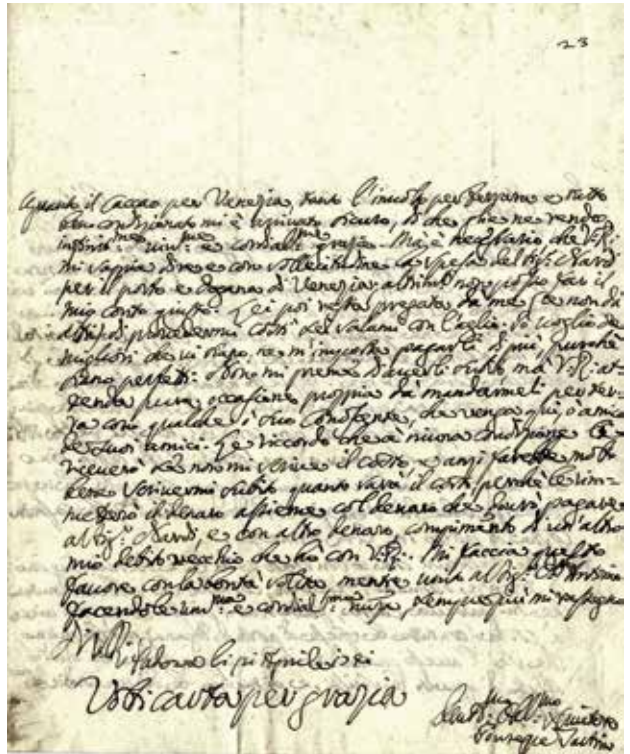 23
Quanto il Caccao per Venezia, tanto l'involto per Ferrara e tutto
ben condizionato mi è arrivato sicuro, di che gliene rendo
infinite e cordial grazie. Ma è necessario che V. R.
mi sappia dire e con sollecitudine la spesa del Sig. Nardi
per il porto e dogana di Venezia altrimenti non posso far il
mio conto giusto. Lei poi resta pregata da me se non dà
provedermi costì dei salami con l'aglio. Io voglio de
migliori che vi siano, ne m'importa pagarli di più, purché
siano perfetti. Non mi preme d'averli subito ma V. R. at-
tenda pure occasione propria da mandarmeli per ter-
ra con qualche suo Conoscente, che venga qui, o amico
de suoi amici. Le ricordo che a nuova condizione
se non mi scrive il costo, e anzi farebbe molto
bene scrivermi subito quanto sarà il costo perché le rim-
metterò il denaro assieme col denaro che dovrò pagare
al Sig. Nardi, e con altro denaro, compimento di un altro
mio debito vecchio che ho con V. R. Mi faccia questo
favore con la bontà solita, mentre unito al Sig.
facendole e cordial, sempre più mi rassegno
Di V. R.
Padova li Aprile
Volti carta per grazia
Servitore
Giuseppe Tartini